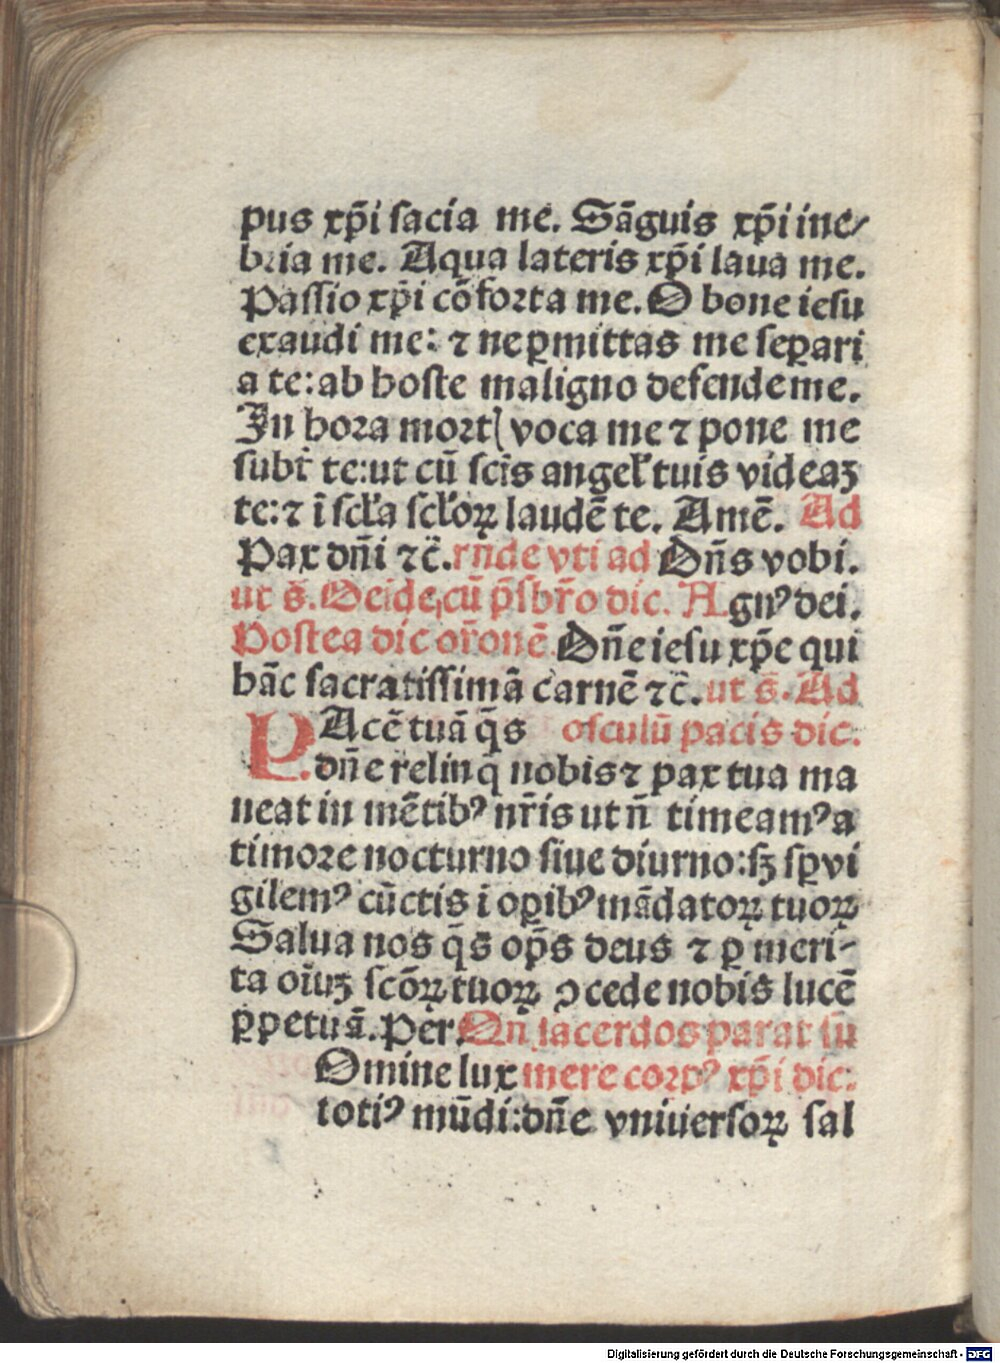 pus xp̄i sacia me. Sāguis xp̄i ine⸗
bria me. Aqua lateris xp̄i laua me.
Passio xp̄i cōforta me. O bone iesu
exaudi me: ⁊ ne ꝑmittas me seꝑari
a te: ab hoste maligno defende me.
In hora mortꝭ voca me ⁊ pone me
iubꝛ̄ te: ut cū scīs angeꝉ tuis videaꝫ
te: ⁊ ī scꝉa scꝉoꝝ laudē te. Amē. Ad
Pax dn̄i ⁊c̄. rn̄de vti ad Dn̄s vobi.
ut s̄. Deide cū p̄sbr̄o dic. Agnꝰ dei.
Postea dic or̄onē Dn̄e iesu xp̄e qui
hāc sacratissimā carnē ⁊c̄. ut s̄. Ad
PAcē tuā q̄s osculū pacis dic.
dn̄e relinq̄ nobis ⁊ pax tua ma
neat in mētibꝰ nr̄is ut n̄ timeamꝰ a
timore nocturno siue diurno: sꝫ sꝑ vi
gilemꝰ cūctis i oꝑibꝰ mādatoꝝ tuoꝝ
Salua nos q̄s op̄s deus ⁊ ꝑ meri⸗
ta oīuꝫ scōꝝ tuoꝝ ꝯcede nobis lucē
ꝑpetuā. Per. Qn̄ sacerdos parat su
Omine lux mere corpꝰ xp̄i dic:
totiꝰ mūdi: dn̄e vniuersoꝝ sal
Digitalisierung gefördert durch die Deutsche Forschungsgemeinschaft - DFG